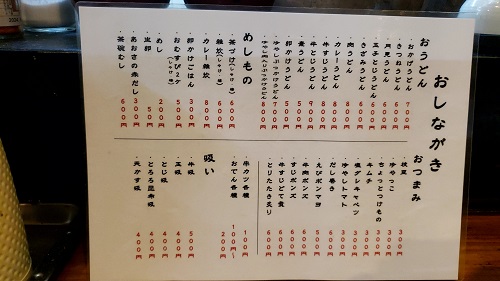 おしながき
おうどん
・おかげうどん 700円
・きつねうどん 600円
・月見うどん 600円
・玉子とじうどん 600円
・きざみうどん 600円
・肉うどん 800円
・カレーうどん 800円
・牛すじうどん 800円
・牛とじうどん 900円
・卵かけうどん 500円
・素うどん 500円
・冷やしぶっかけうどん 700円
めしもの
・茶づけ(しゃけ・梅) 600円
・雑炊(しゃけ・梅) 600円
・カレー雑炊 800円
・卵かけごはん 300円
・おむすび2ケ(しゃけ・梅) 500円
・めし 200円
・生卵 50円
・あおさの赤だし 300円
・茶碗むし 600円
おつまみ
・枝豆 300円
・冷やっこ 300円
・ちょっとつけもの 300円
・キムチ 300円
・塩ダシキャベツ 300円
・冷やしトマト 300円
・だし巻き
・えびポンマヨ 500円
・牛肉ポンズ
・すじポンズ
・牛すじどて煮 600円
・とりたたき炙り 600円
・串カツ各種 100円
・おでん各種 100円〜
吸い
・牛吸 500円
・玉吸 400円
・とじ吸 400円
・とろろ昆布吸
・天かす吸 400円